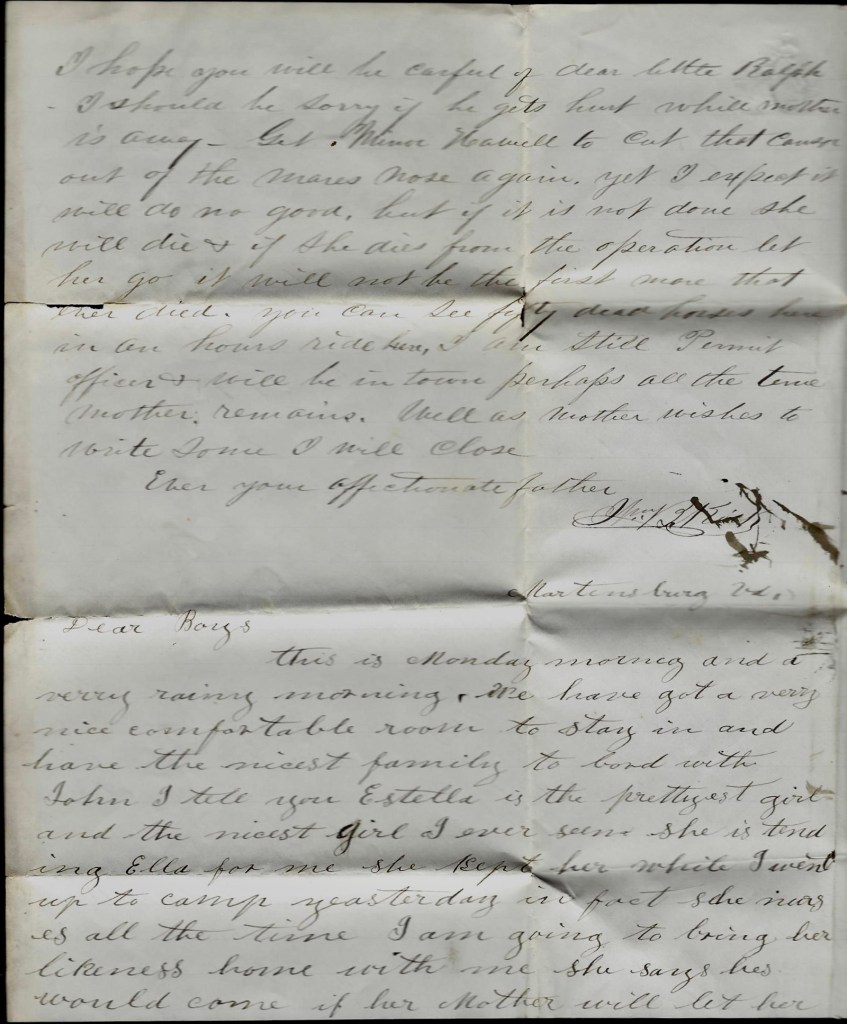 I hope you will be carful of dear little Ralph
- I should be sorry if he gets hurt while mother
is away - Get Minor Hawell to cut that cancer
out of the mares nose again. yet I expect it
will do no good. but if it is not done she
will die & if she dies from the operation let
her go it will not be the first mare that
ever died. you can see fifty dead horses here
in an hours ride here, I am still Permit
officer & will be in town perhaps all the time
mother remains. Well as mother wishes to
write some I will close
Ever your affectionate father
Martensburg Va.
Dear Boys
this is Monday morneg and a
verry rainy morning. We have got a verry
nice comfortable room to stay in and
have the nicest family to bord with
John I tell you Estella is the prettyest girl
and the nicest girl I ever seen she is tend
ing Ella for me she kept her while I went
up to camp yeasterday in fact she nurs
es all the time I am going to bring her
likeness home with me she says hes
would come if her Mother will let her